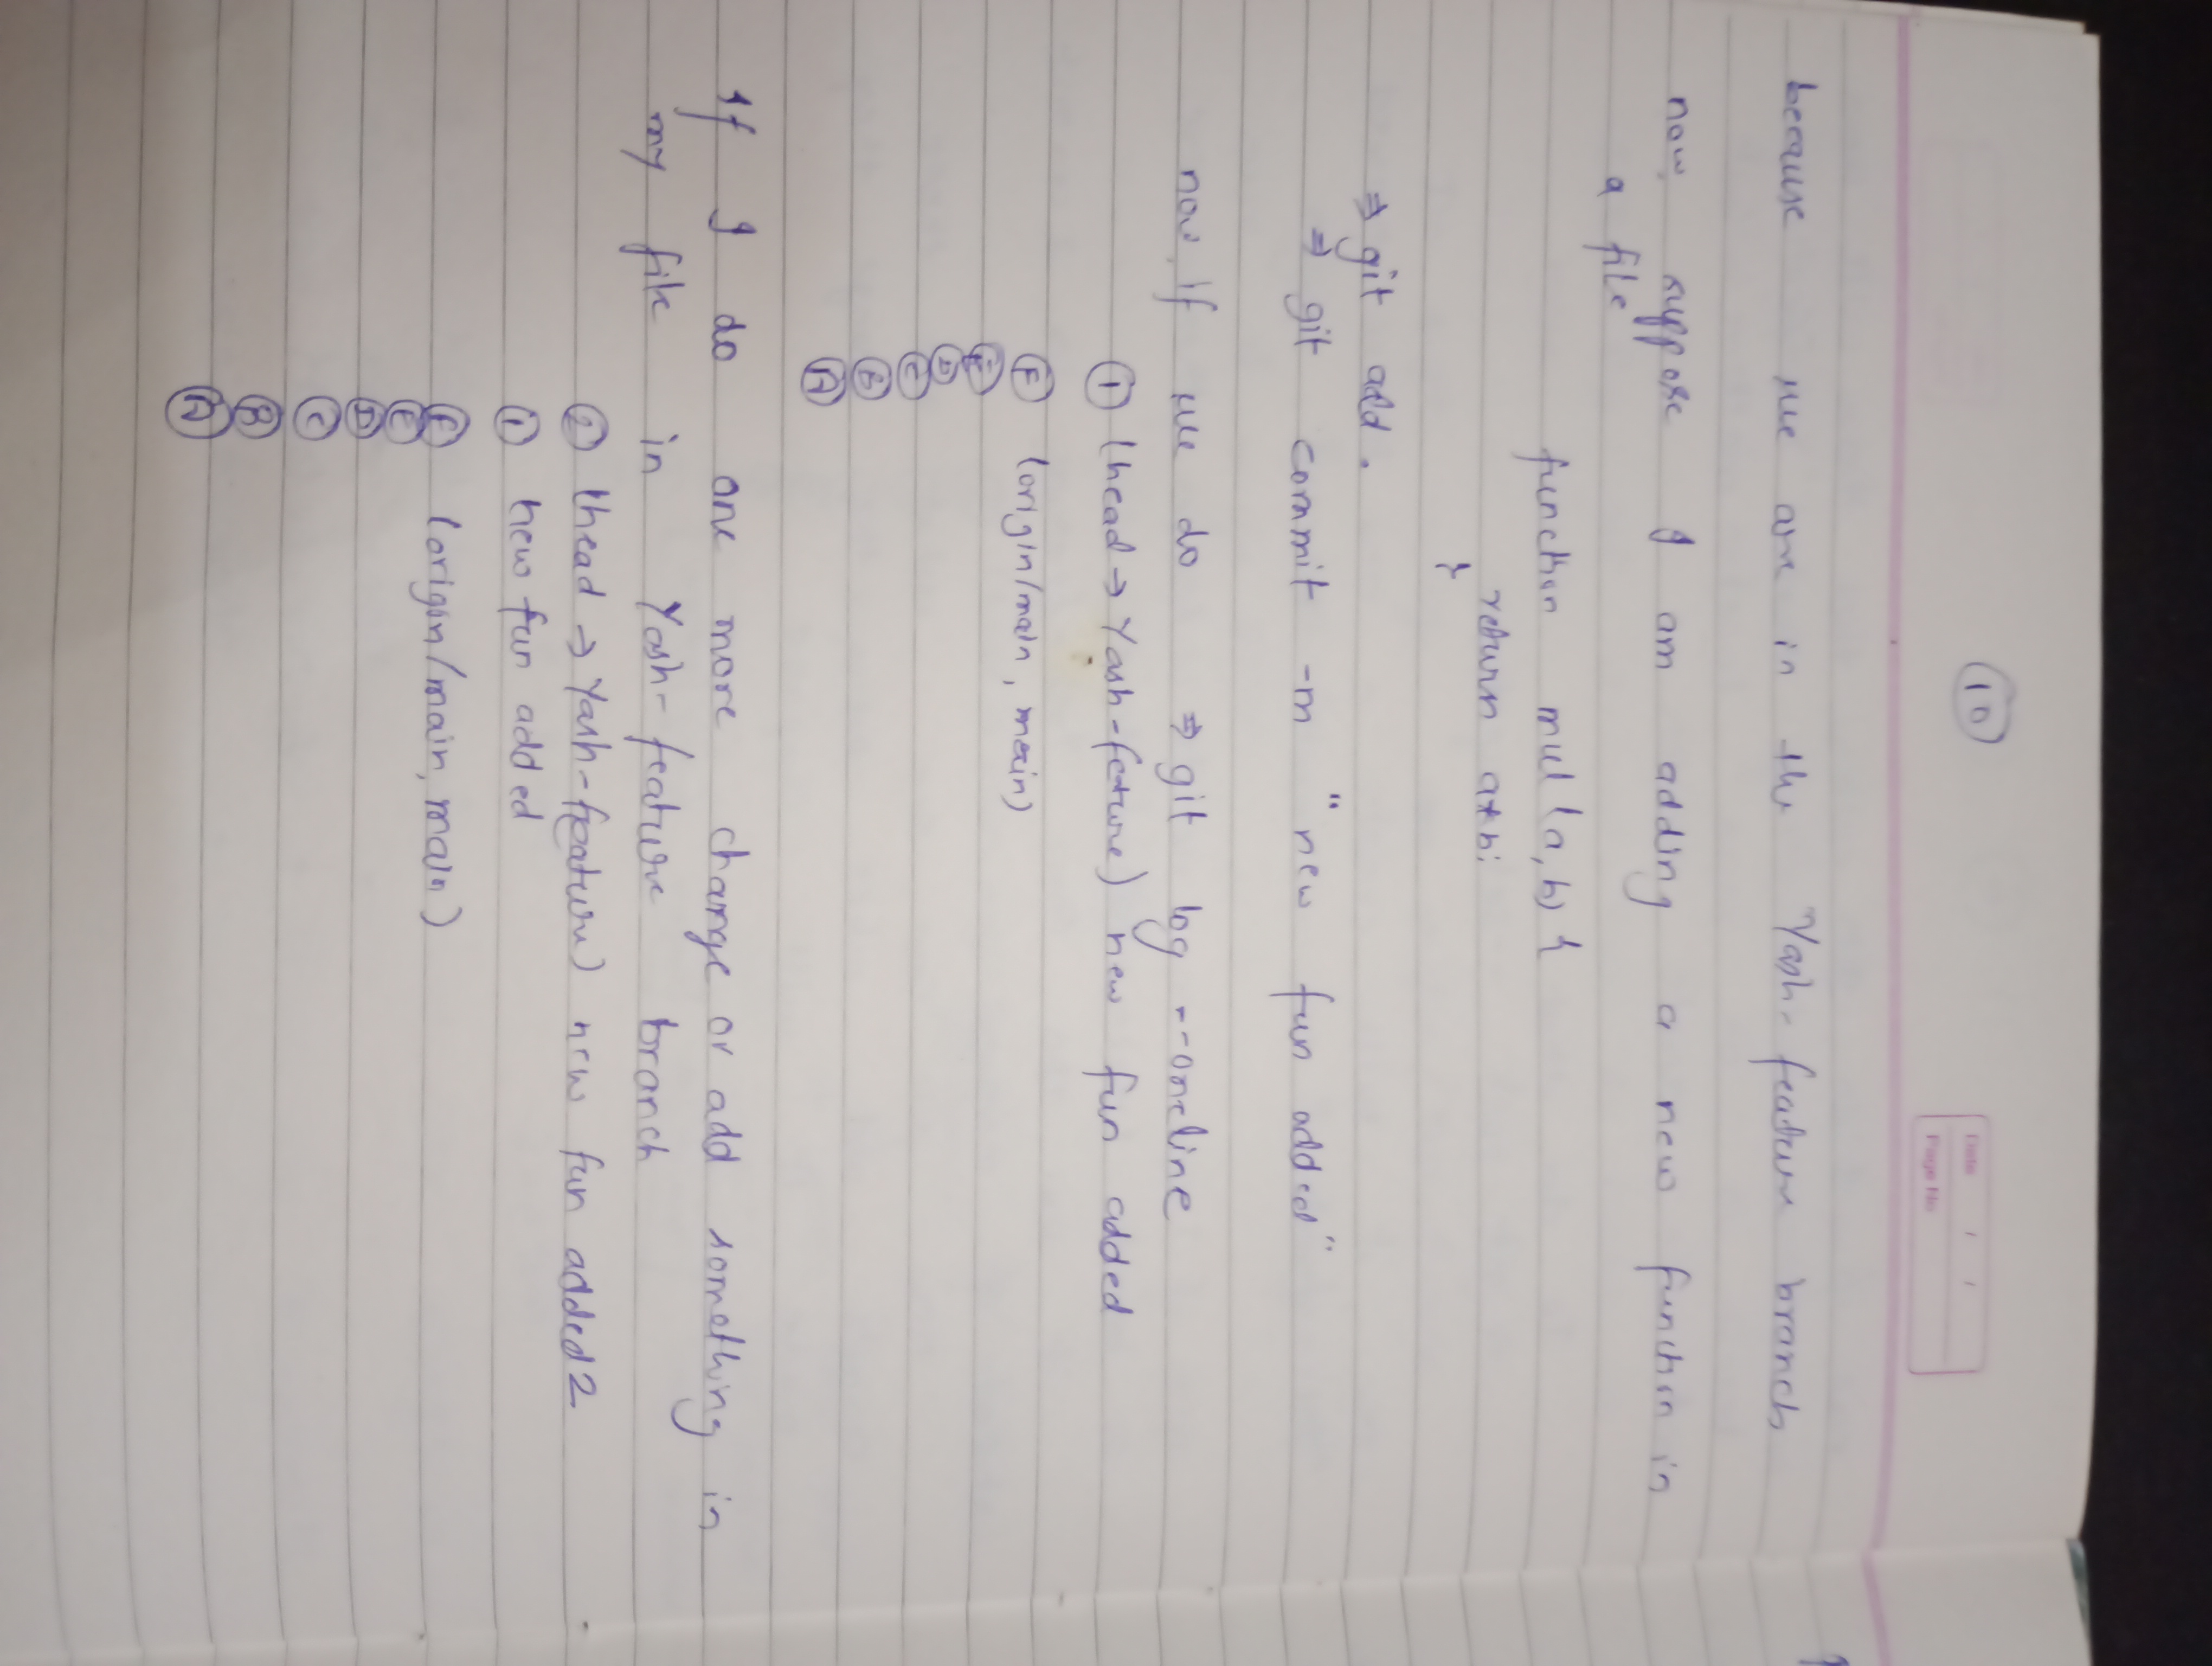 10
Date / /
Page No
because we are in the Yash-feature branch
now, suppose I am adding a new function in
a file
function mul (a,b) {
return a*b;
}
⇒ git add .
⇒ git commit -m "new fun added"
now, if we do ⇒ git log --oneline
① (head → Yash-feature) new fun added
Ⓕ (origin/main, main)
Ⓔ
Ⓓ
Ⓒ
Ⓑ
Ⓐ
If I do one more change or add something in
my file in Yash-feature branch
② (head → Yash-feature) new fun added 2
① new fun added
Ⓕ (origin/main, main)
Ⓔ
Ⓓ
Ⓒ
Ⓑ
Ⓐ